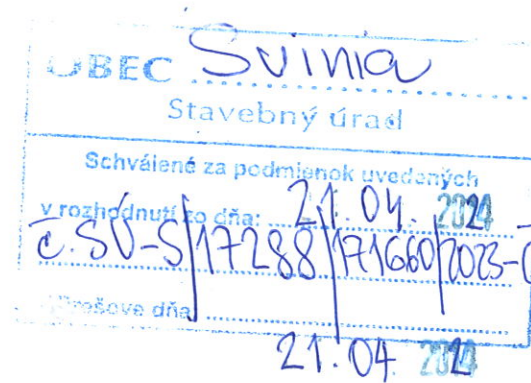 OBEC Svinia
Stavebný úrad
Schválené za podmienok uvedených
v rozhodnutí zo dňa: 21. 04. 2024
č. SÚ-S/17288/171660/2023-
Prešove dňa
21. 04. 2024